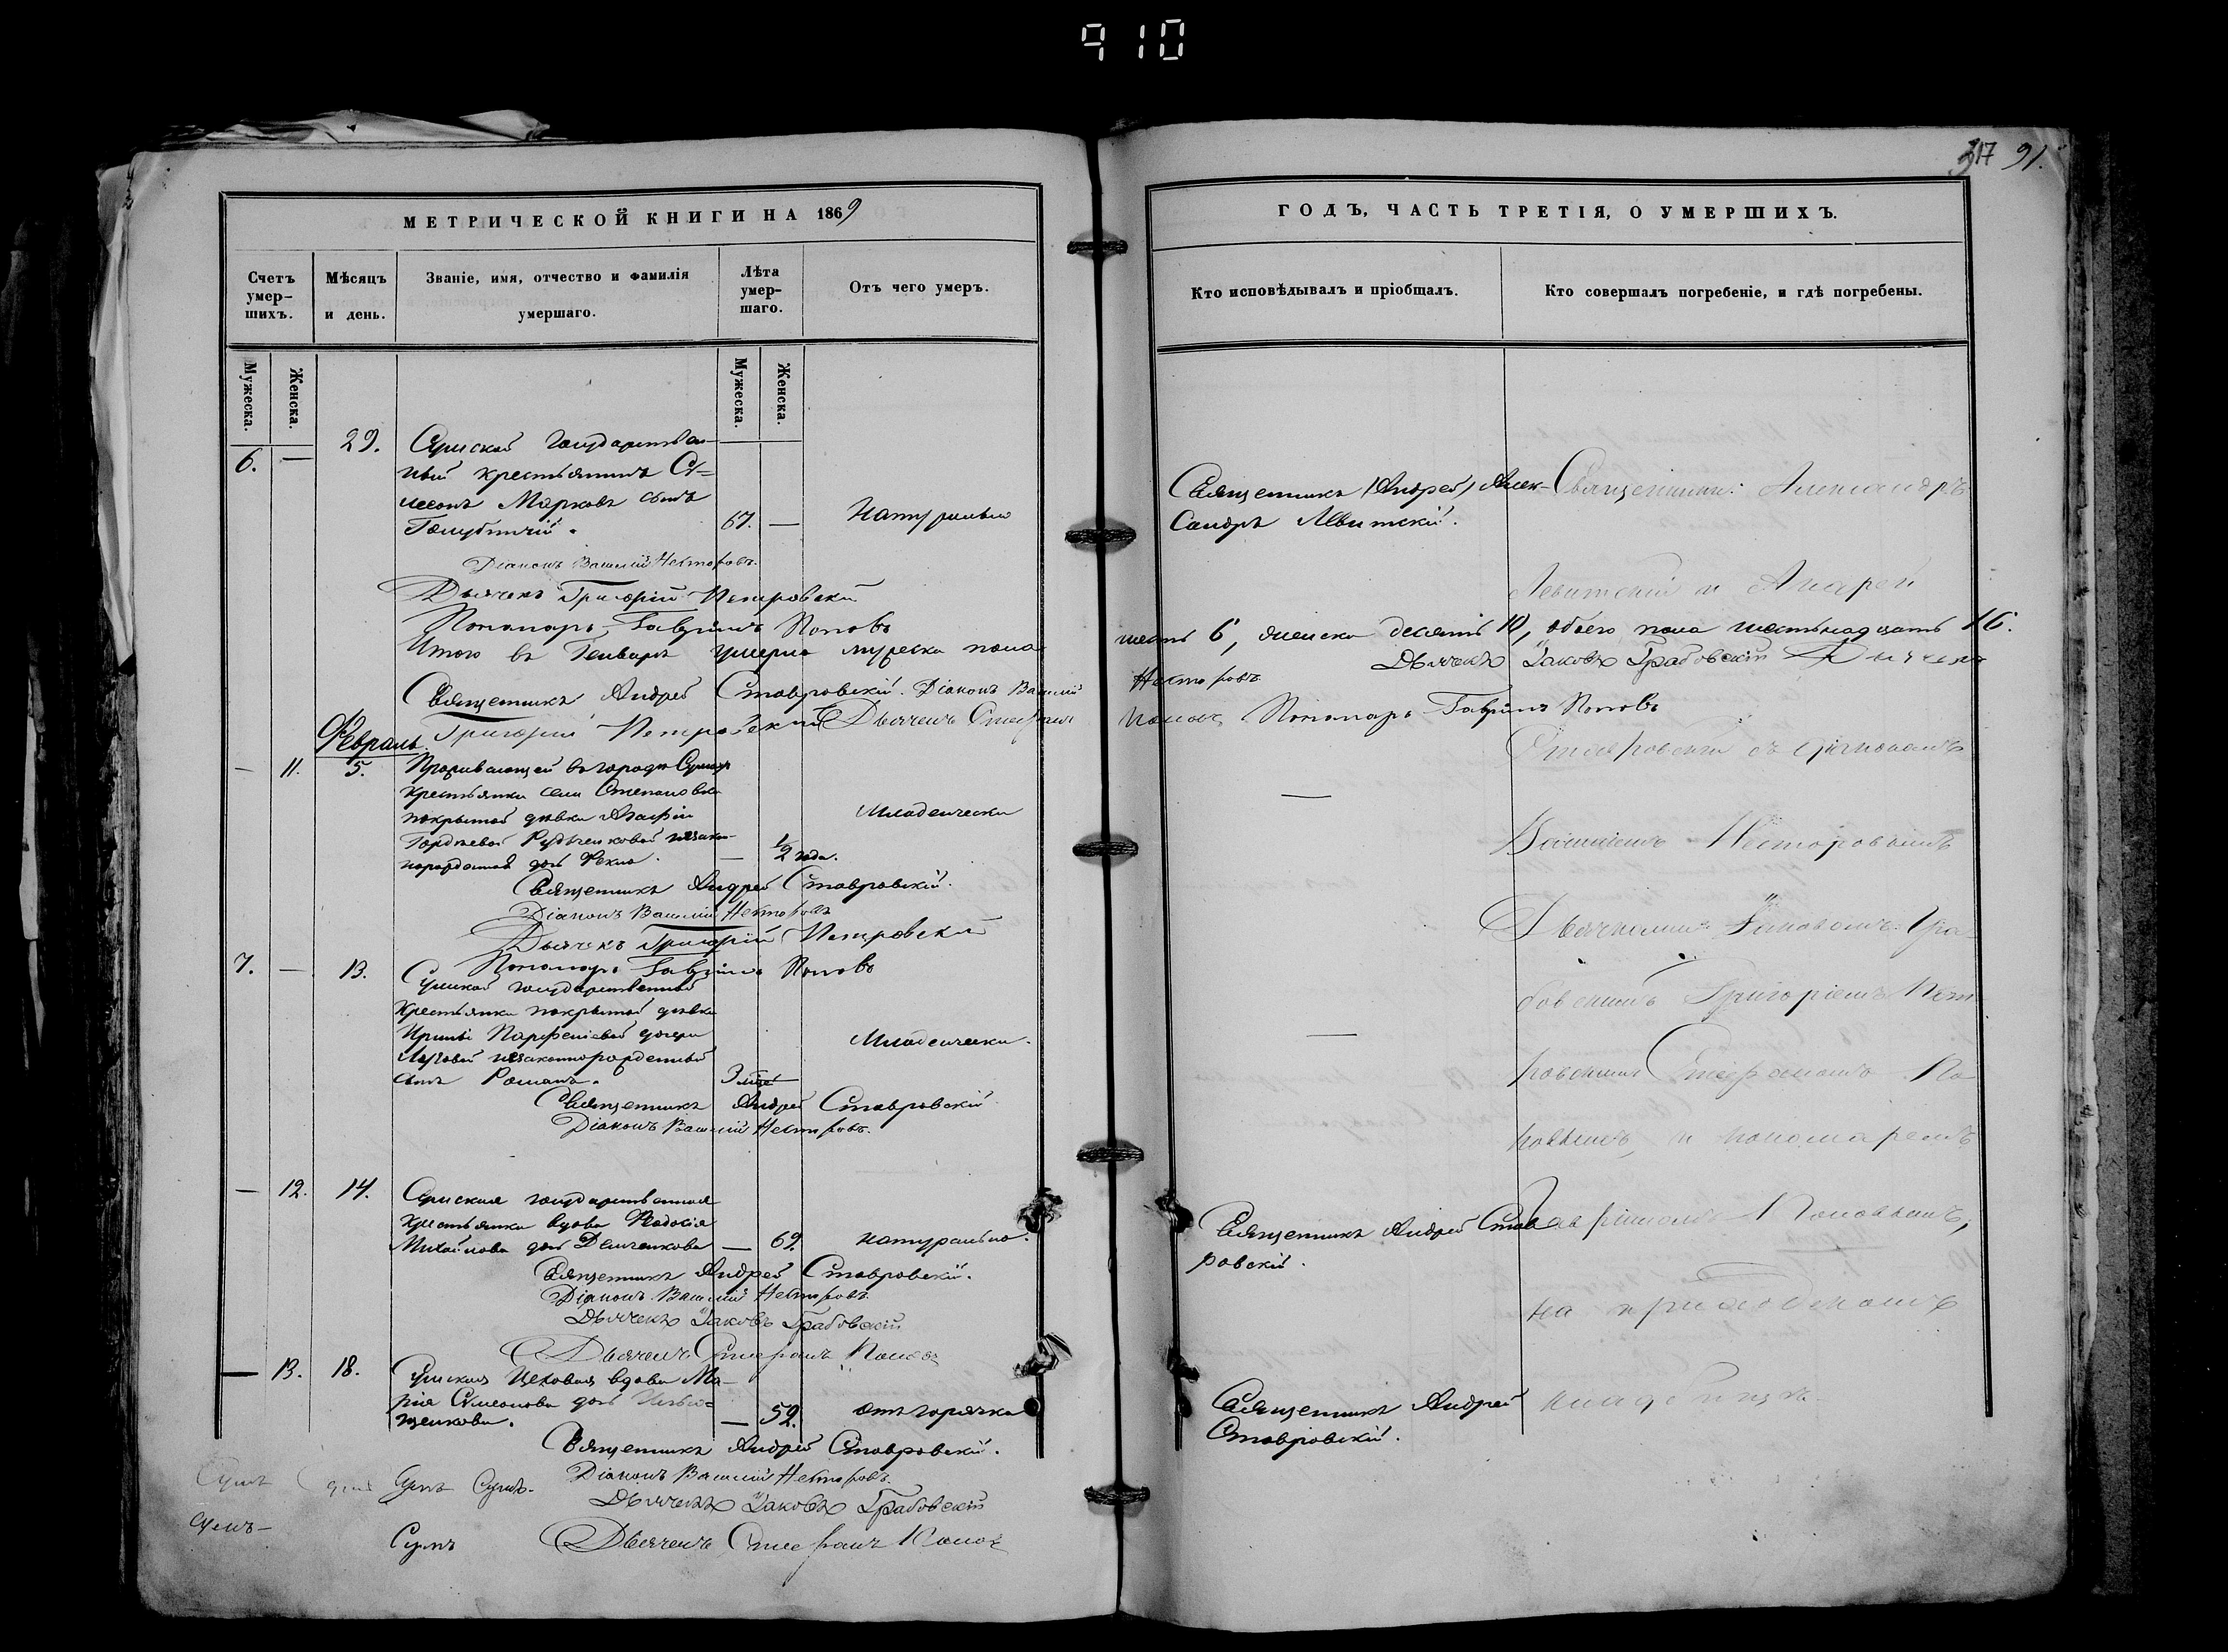 910
317 91.
МЕТРИЧЕСКОЙ КНИГИ НА 1869
Счетъ умер-
шихъ.
Мѣсяцъ
и день.
Званіе, имя, отчество и фамилія
умершаго.
Лѣта
умер-
шаго.
Отъ чего умеръ.
Мужеска.
Женска.
Мужеска.
Женска.
6. — 29. Сумской государствен-
ный крестьянинъ Си-
меонъ Марковъ сынъ
67. — Натурально
Діаконъ Василій Несторовъ.
Дьячекъ Григорій Петровскій
Пономарь Гавріилъ Поповъ
Итого въ Генварѣ умерло мужеска пола
Священникъ Андрей Ставровскій. Діаконъ Василій
Григорій Петровскій Дьячекъ Стефанъ
Февраль.
— 11. 5. Проживающей въ городѣ Сумахъ
крестьянки села Степановки
покрытой дѣвки
Гордѣевой незакон-
норожденная дочь
— 1/2 года.
Младенчески
Священникъ Андрей Ставровскій.
Діаконъ Василій Несторовъ
Дьячекъ Григорій Петровскій
Пономарь Гавріилъ Поповъ
7. — 13. Сумской государственной
крестьянки покрытой дѣвки
Ирины Парфеніевой дочери
незаконнорожденный
сынъ Романъ.
3 мѣс.
Младенчески.
Священникъ Андрей Ставровскій
Діаконъ Василій Несторовъ.
— 12. 14. Сумская государственная
крестьянка вдова Ѳеодосія
Михайлова дочь Демченкова — 69. натурально.
Священникъ Андрей Ставровскій.
Діаконъ Василій Несторовъ.
Дьячекъ Іаковъ Грабовскій
Дьячекъ Стефанъ Поповъ
— 13. 18. Сумская цеховая вдова Ма-
рія Симеонова дочь
— 52. отъ горячки
Священникъ Андрей Ставровскій.
Діаконъ Василій Несторовъ.
Дьячекъ Іаковъ Грабовскій
Дьячекъ Стефанъ Поповъ
Сумъ
ГОДЪ, ЧАСТЬ ТРЕТІЯ, О УМЕРШИХЪ.
Кто исповѣдывалъ и пріобщалъ.
Кто совершалъ погребеніе, и гдѣ погребены.
Священникъ (Андрей) Алек-
сандръ Левитскій.
Священники: Александръ
Левитскій и Андрей
шесть 6, женска десять 10, обоего пола шестьнадцать 16.
Несторовъ Дьячекъ Іаковъ Грабовскій Дьячекъ
Поповъ Пономарь Гавріилъ Поповъ
Ставровскій съ діакономъ
—
Василіемъ Несторовымъ
Дьячками: Іаковомъ Гра-
бовскимъ Григоріемъ Пет-
—
ровскимъ Стефаномъ По-
повымъ, и пономаремъ
Священникъ Андрей Став-
ровскій.
Гавріиломъ Поповымъ,
на приходскомъ
кладбищѣ.
Священникъ Андрей
Ставровскій.